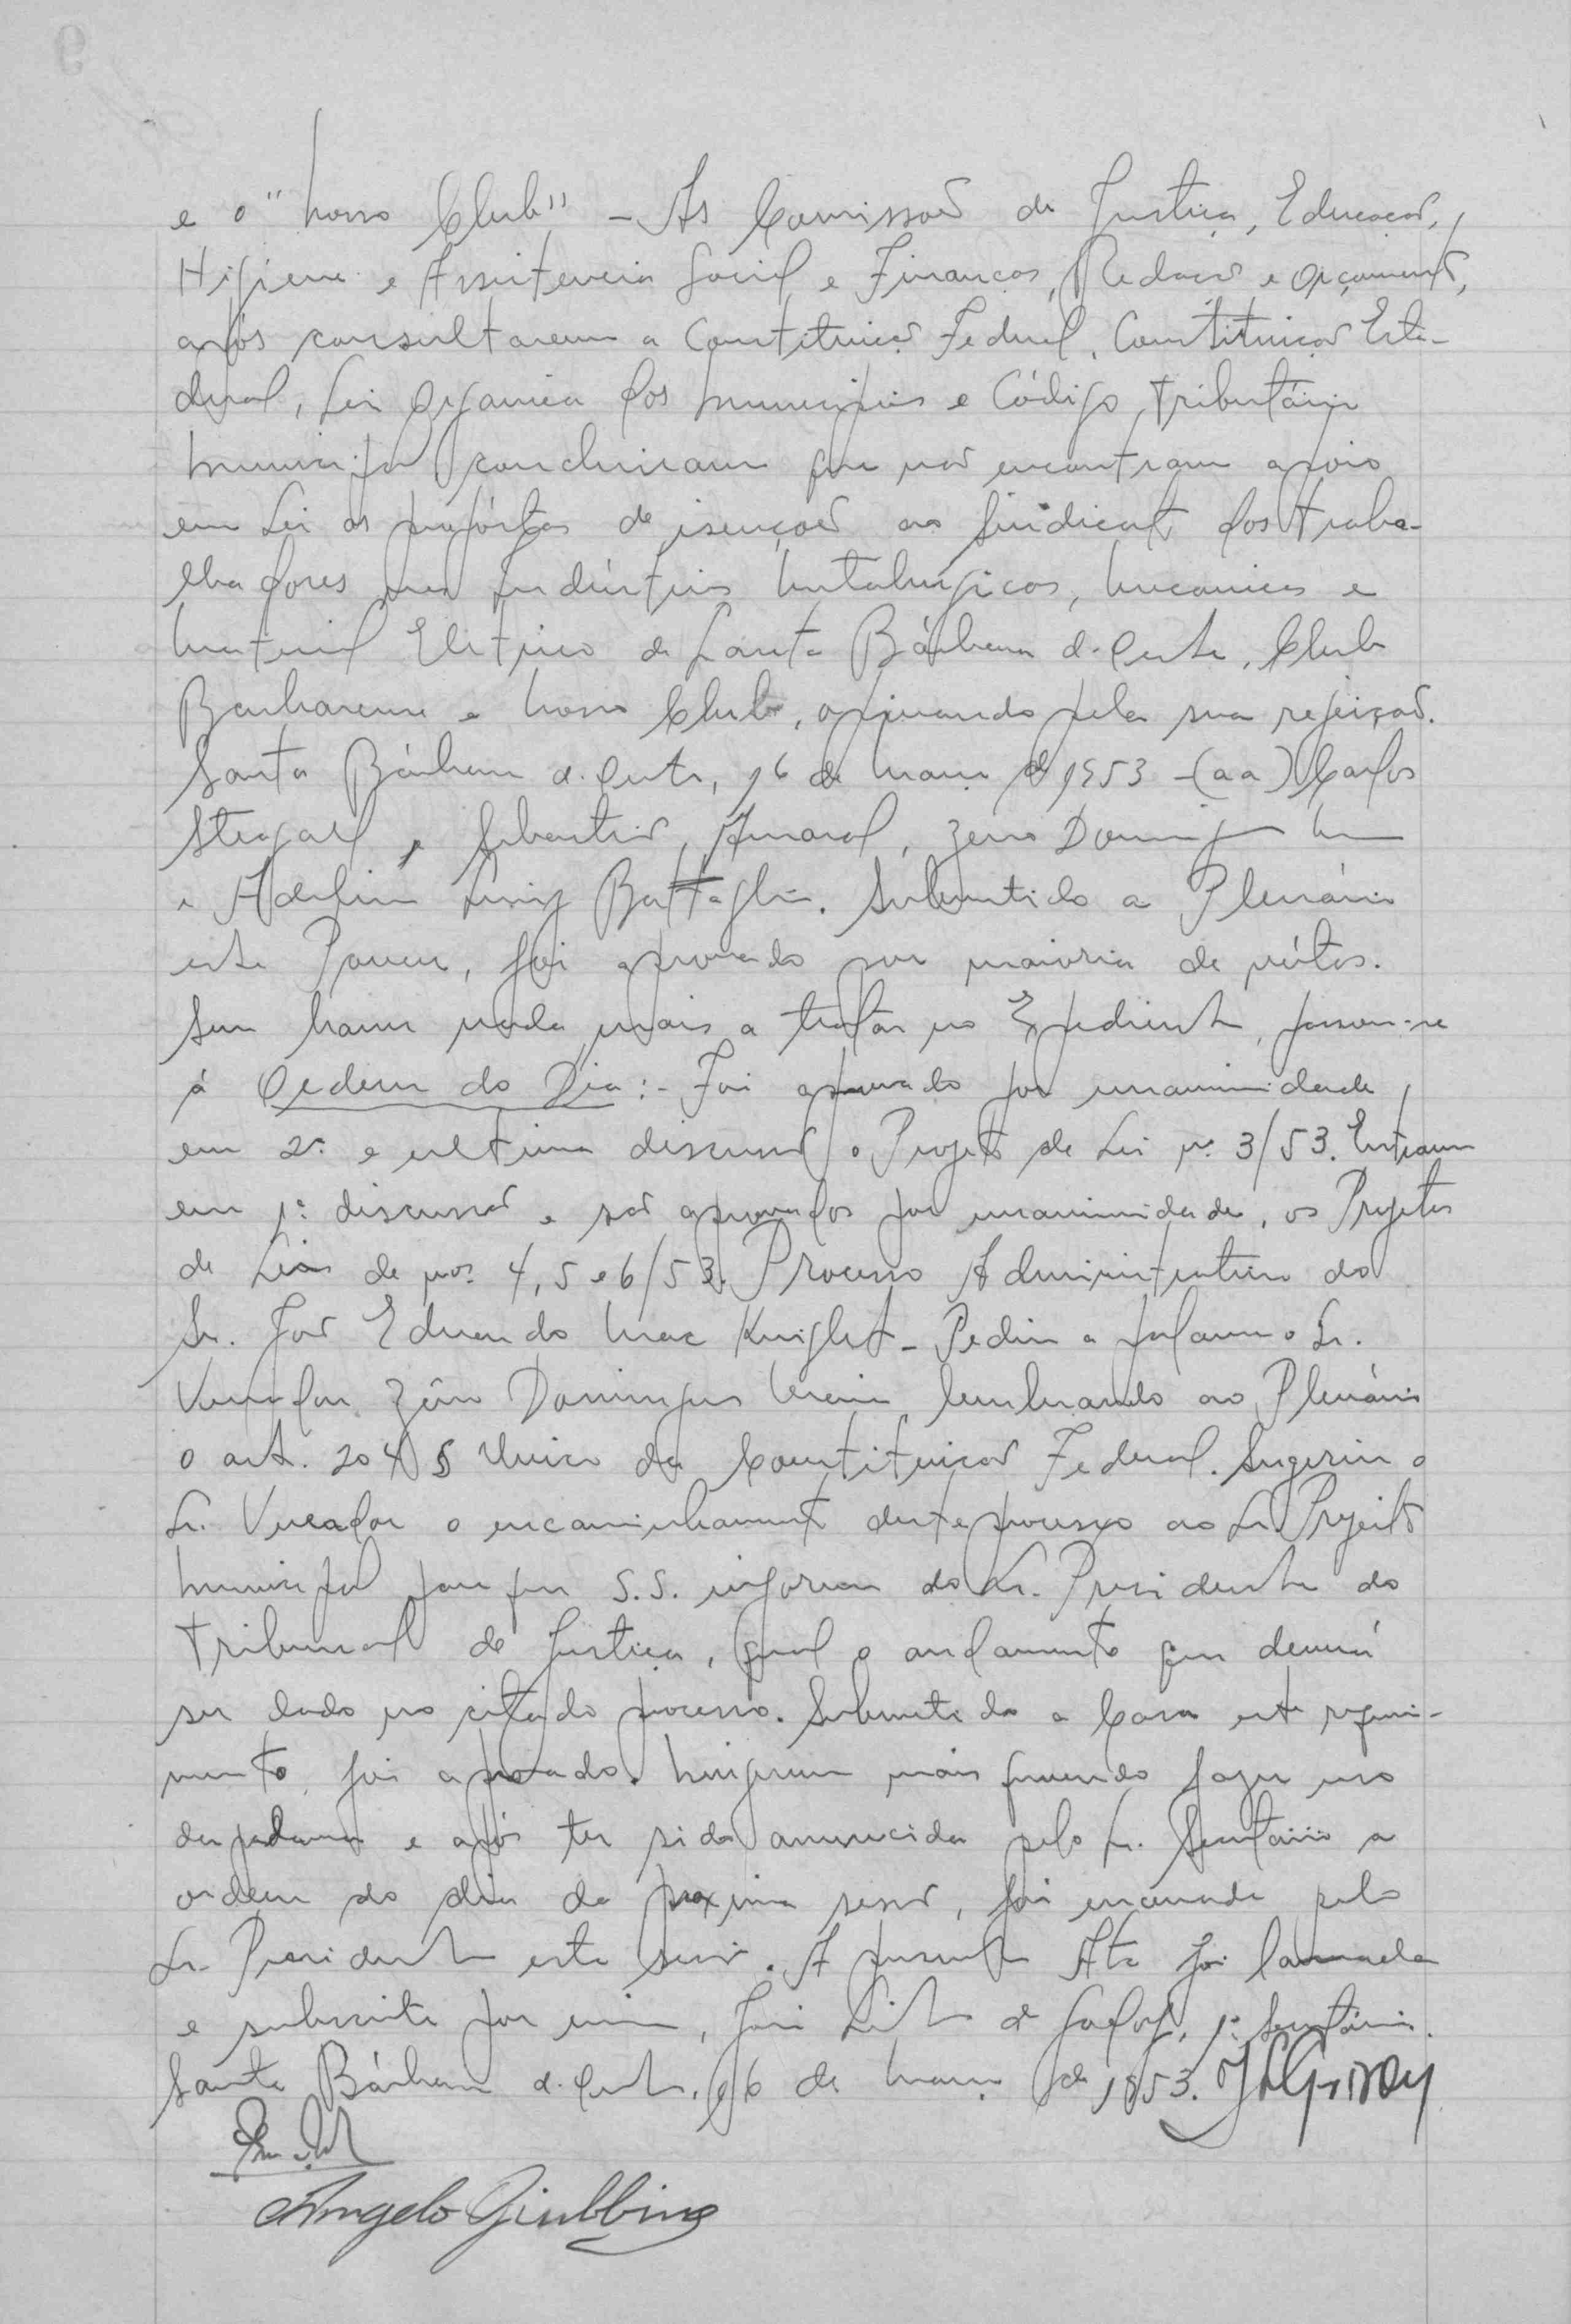 e o "Nosso Club" - As Comissões de Justiça, Educação,
Higiene e Assistencia Social e Finanças, Redação e Orçamento,
após consultarem a Constituição Federal, Constituição Esta-
dual, Lei Organica dos Municipios e Código Tributário
Municipal concluiram que não encontram apoio
em Lei as propóstas de isenções ao Sindicato dos Traba-
lhadores nas Indústrias Metalurgicas, Mecanicas e
Material Eletrico de Santa Bárbara d'Oeste, Club
Barbarense e Nosso Club, opinando pela sua rejeição.
Santa Bárbara d'Oeste, 16 de Março de 1953 - (aa) Carlos
Stegall, Sebastião Amaral, Zeno Domingues
e Adelino Luiz Battaglia. Submetido a Plenário
este Parecer, foi aprovado por maioria de vótos.
Sem haver nada mais a tratar no Expediente, passou-se
á Ordem do Dia:- Foi aprovado por unanimidade,
em 2ª e ultima discussão o Projeto de Lei nº 3/53. Entraram
em 1ª discussão e são aprovados por unanimidade, os Projetos
de Leis de nos. 4, 5 e 6/53. Processo Administrativo do
Sr. José Eduardo Mac Knight - Pediu a palavra o Sr.
Vereador Zêno Domingues Maia lembrando ao Plenário
o art. 204 § Unico da Constituição Federal. Sugeriu o
Sr. Vereador o encaminhamento deste processo ao Sr. Prefeito
Municipal para que S.S. informe do Sr. Presidente do
Tribunal de Justiça, qual o andamento que deverá
ser dado no citado processo. Submetido a Casa este requeri-
mento, foi aprovado. Ninguem mais querendo fazer uso
da palavra e após ter sido anunciada pelo Sr. Secretário a
ordem do dia da proxima sessão, foi encerrada pelo
Sr. Presidente esta sessão. A presente Ata foi lavrada
e subscrita por mim, José Leite de Godoy, 1º Secretário.
Santa Bárbara d'Oeste, 16 de Março de 1953. JLGodoy
Angelo Giubbina